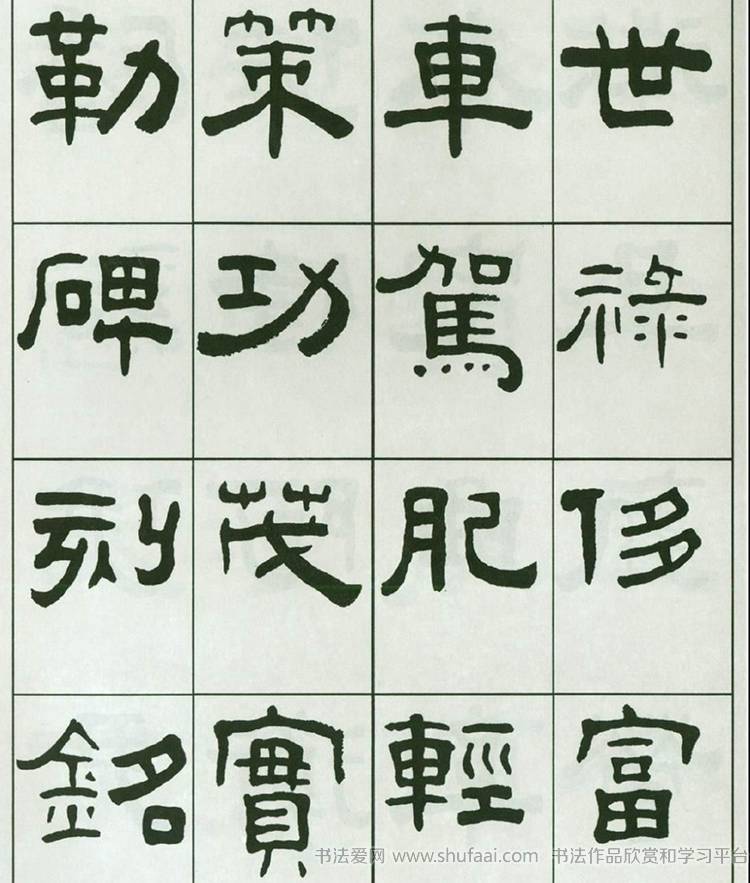 世祿侈富
車駕肥輕
策功茂實
勒碑刻銘
书法爱网 www.shufaai.com 书法作品欣赏和学习平台